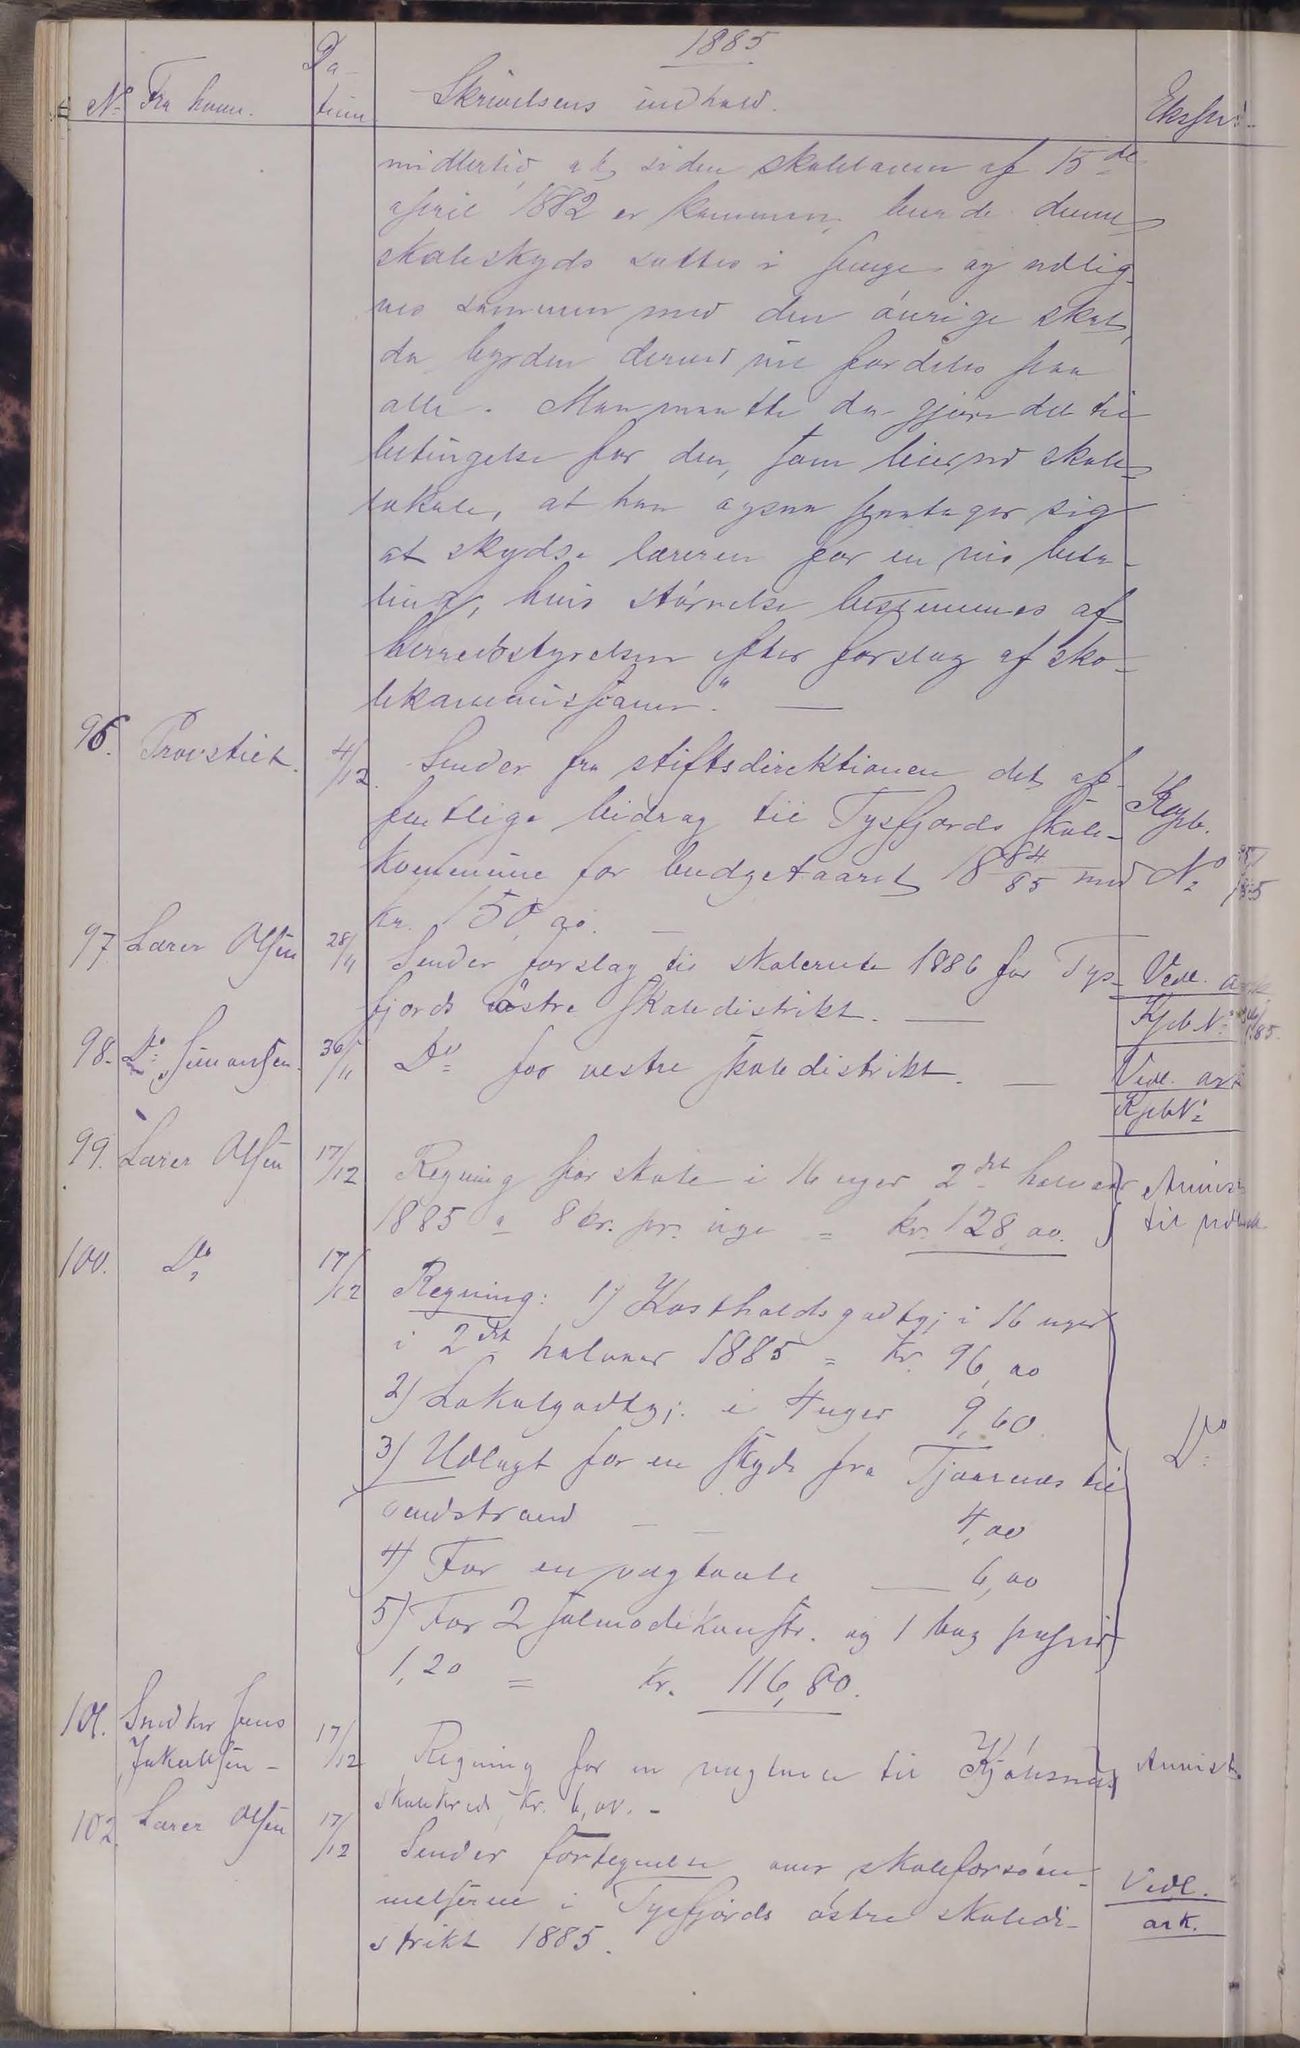 1885
Da-
No Fra hvem. tum Skrivelsens indhold. Eksped.
midlertid, at, siden skoleloven af 15de
april 1882 er kommen, burde denne
skoleskyds sættes i penge og udlig-
nes sammen med den øvrige skat,
da byrden derved vil fordeles paa
alle. Man maatte da gjøre det til
betingelse for den, som leier ud skole-
lokale, at han ogsaa paatager sig
at skydse læreren for en vis beta-
ling, hvis størrelse bestemmes af
herredsstyrelsen efter forslag af sko-
lekommissionen." —
96. Provstiet. 4/12 Sender fra stiftsdirektionen det of-
fentlige bidrag til Tysfjords skole-
kommune for budgetaaret 1884/85 med No
kr. 150,00. —
97 Lærer Olsen 28/11 Sender forslag til skolerute 1886 for Tys- Vedl. ark
fjords østre skoledistrikt. — Kpb. No
98. Do Simonsen. 30/11 Do for vestre skoledistrikt. — Vedl. ark
Kpb No
99. Lærer Olsen 17/12 Regning for skole i 16 uger 2det halvaar Anvist
1885 a 8 kr. pr. uge = kr. 128,00. til udbet.
100. Do 17/12 Regning: 1) Kostholdsgodtgj. i 16 uger
i 2det halvaar 1885 = Kr. 96,00
2) Lokalgodtgj. i 4 uger 9,60.
3) Udlagt for en skyds fra Tjaarnes til Do
endstrand — — 4,00
4) For en vægtavle — 6,00
5) For 2 salmodikonstr. og 1 bog papir
1,20 = kr. 116,80.
101. Snedker Jens
Jakobsen - 17/12 Regning for en vægtavle til Kjøbsnæs Anvist.
skolekreds, kr. 6,00. -
102. Lærer Olsen 17/12 Sender fortegnelse over skoleforsøm-
melserne i Tysfjords østre skoledi- Vedl.
strikt 1885. ark.